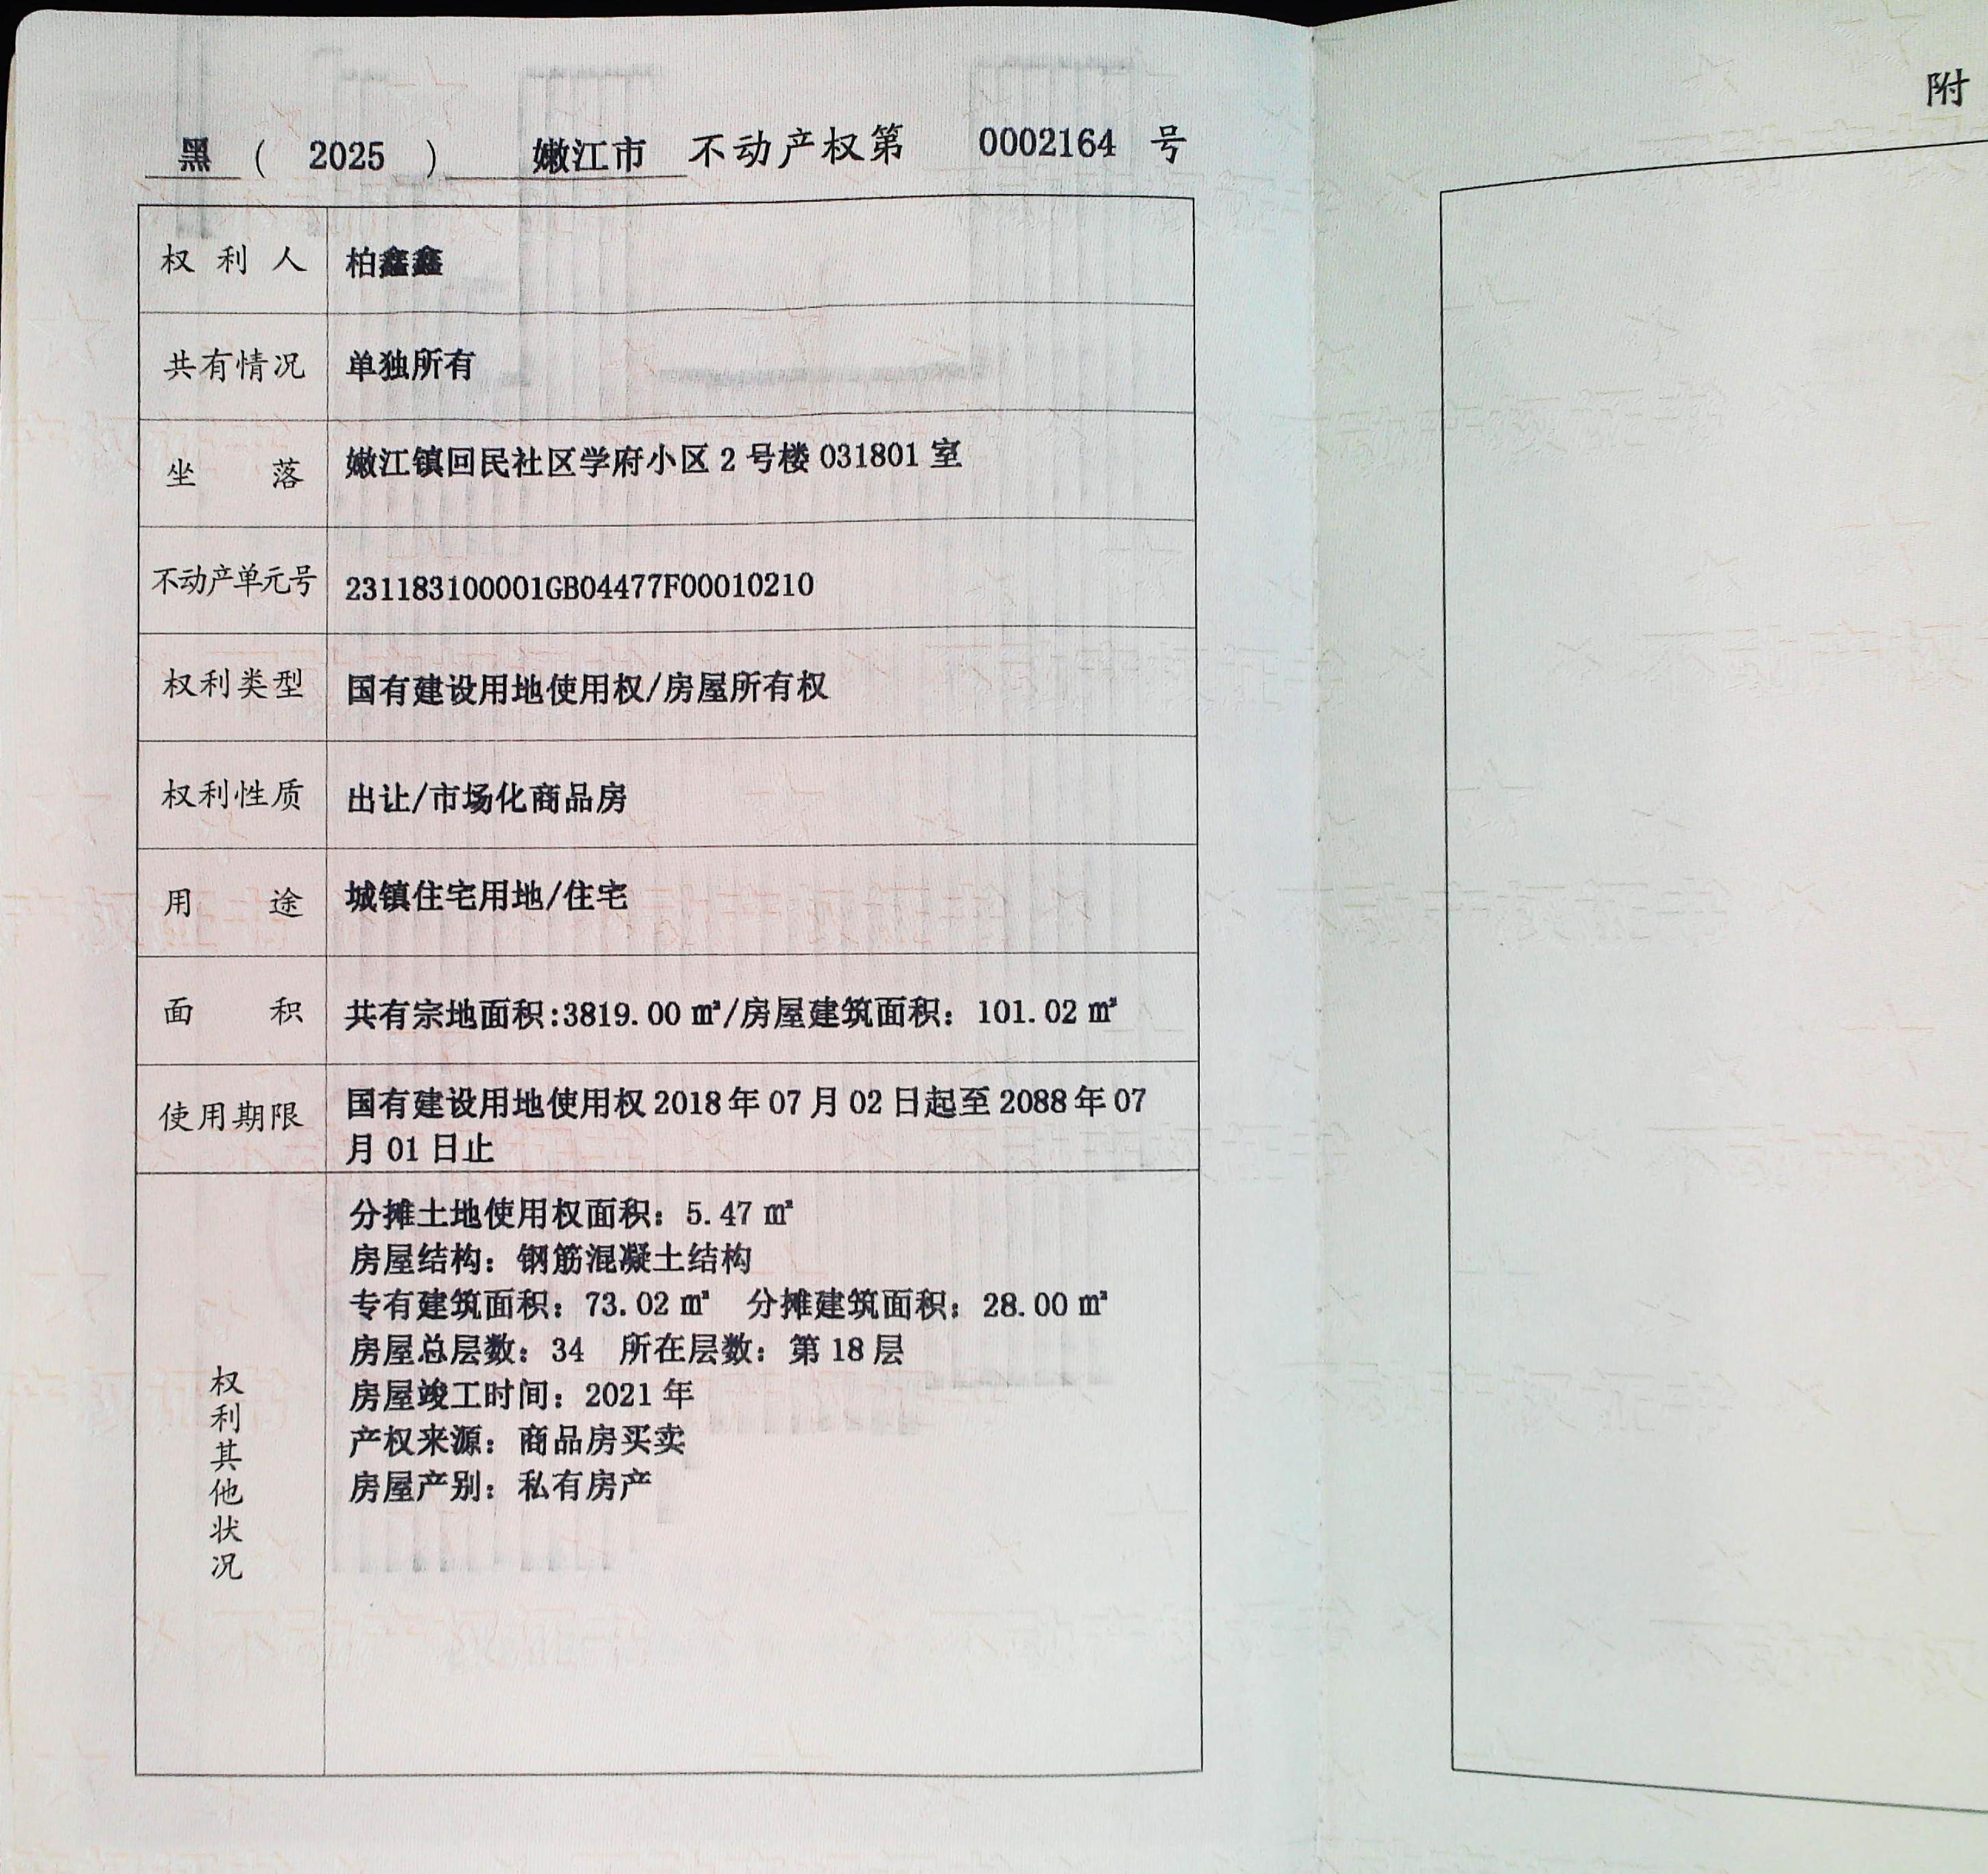 黑 ( 2025 ) 嫩江市 不动产权第 0002164 号
附
权利人 柏鑫鑫
共有情况 单独所有
坐落 嫩江镇回民社区学府小区2号楼031801室
不动产单元号 231183100001GB04477F00010210
权利类型 国有建设用地使用权/房屋所有权
权利性质 出让/市场化商品房
用途 城镇住宅用地/住宅
面积 共有宗地面积:3819.00㎡/房屋建筑面积：101.02㎡
使用期限 国有建设用地使用权2018年07月02日起至2088年07
月01日止
权利其他状况
分摊土地使用权面积：5.47㎡
房屋结构：钢筋混凝土结构
专有建筑面积：73.02㎡ 分摊建筑面积：28.00㎡
房屋总层数：34 所在层数：第18层
房屋竣工时间：2021年
产权来源：商品房买卖
房屋产别：私有房产